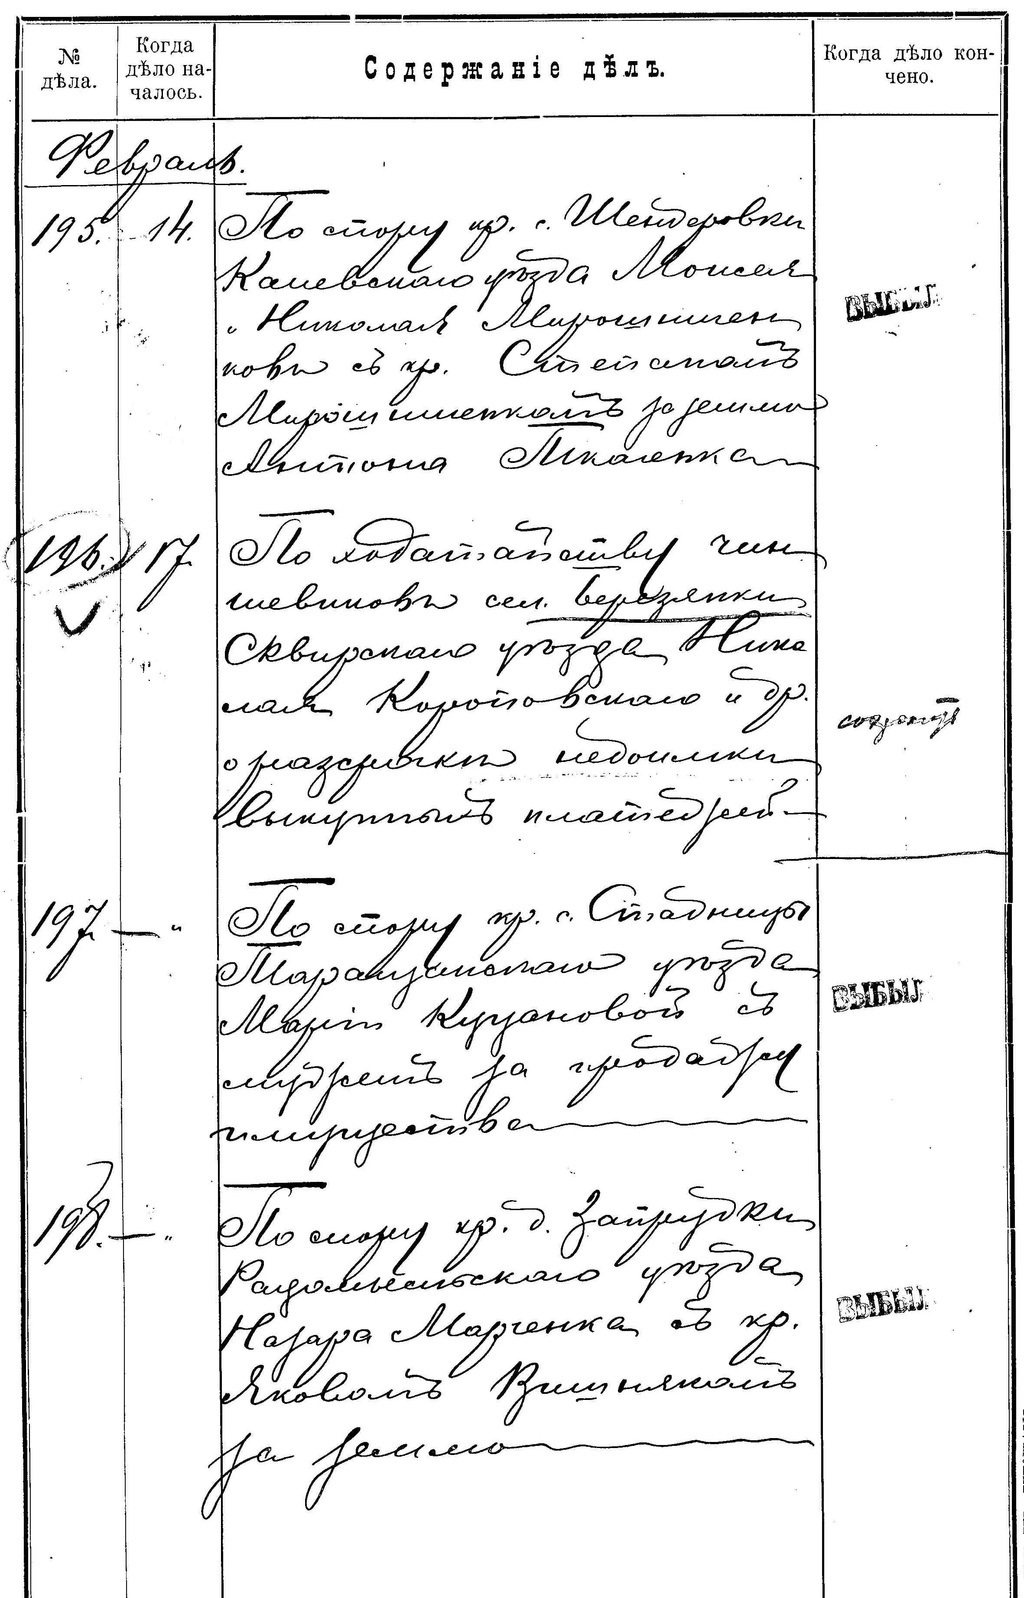 № дѣла.
Когда дѣло на-
чалось.
Содержаніе дѣлъ.
Когда дѣло кон-
чено.
Февраль.
195. 14. По спору кр. с. Шендеровки
Каневскаго уѣзда Моисея
и Николая Мирошничен
ковы съ кр. Степаномъ
Мирошниченкомъ за землю
Антона Ткаленка
196. 17. По ходатайству чин
шевиковъ сел. Березянки
Сквирскаго уѣзда Нико
лая Коротовскаго и др.
о разсрочки недоимки
выкупныхъ платежей
197. — " По спору кр. с. Стадницы
Таращанскаго уѣзда
Маріи Куцановой съ
мужемъ за продажу
имущества
198. — " По спору кр. д. Запрудки
Радомысльскаго уѣзда
Назара Марченка съ кр.
Яковомъ Вишнякомъ
за землю
ВЫБЫЛ
ВЫБЫЛ
ВЫБЫЛ